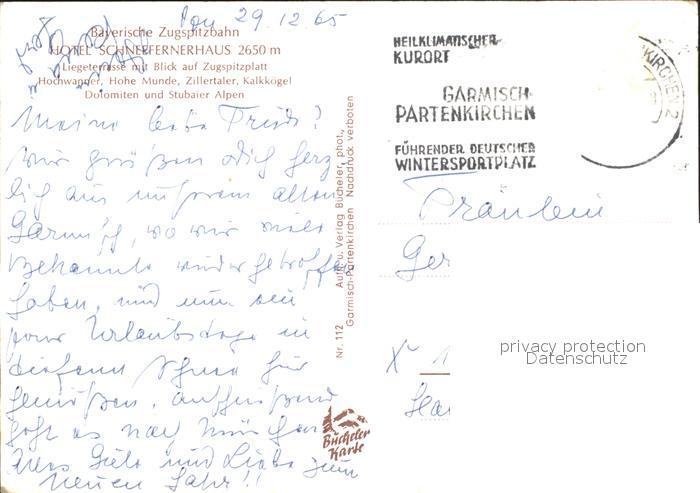 29.12.65
Bayerische Zugspitzbahn
HOTEL SCHNEEFERNERHAUS 2650 m
Liegeterrasse mit Blick auf Zugspitzplatt
Hochwanner, Hohe Munde, Zillertaler, Kalkkögel
Dolomiten und Stubaier Alpen
Meine liebe Friedl!
Wir grüßen dich herz
lich aus unserem alten
Garmisch, wo wir viele
Bekannte wieder getroffen
haben, und nun ein
paar Urlaubstage in
diesem Schnee hier
genießen. anschließend
geht es nach München
Alles Gute und Liebe zum
neuen Jahr!!
Nr. 112 Aufn. u. Verlag Bücheler, phot.,
Garmisch-Partenkirchen Nachdruck verboten
Bücheler
Karte
HEILKLIMATISCHER
KURORT
GARMISCH-
PARTENKIRCHEN
FÜHRENDER DEUTSCHER
WINTERSPORTPLATZ
KIRCHEN 2
Fräulein
Ger
privacy protection
Datenschutz